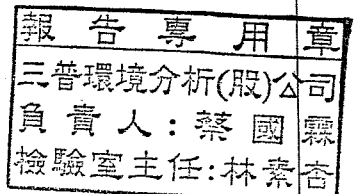 報告專用章
三普環境分析(股)公司
負責人：蔡國霖
檢驗室主任：林素杏